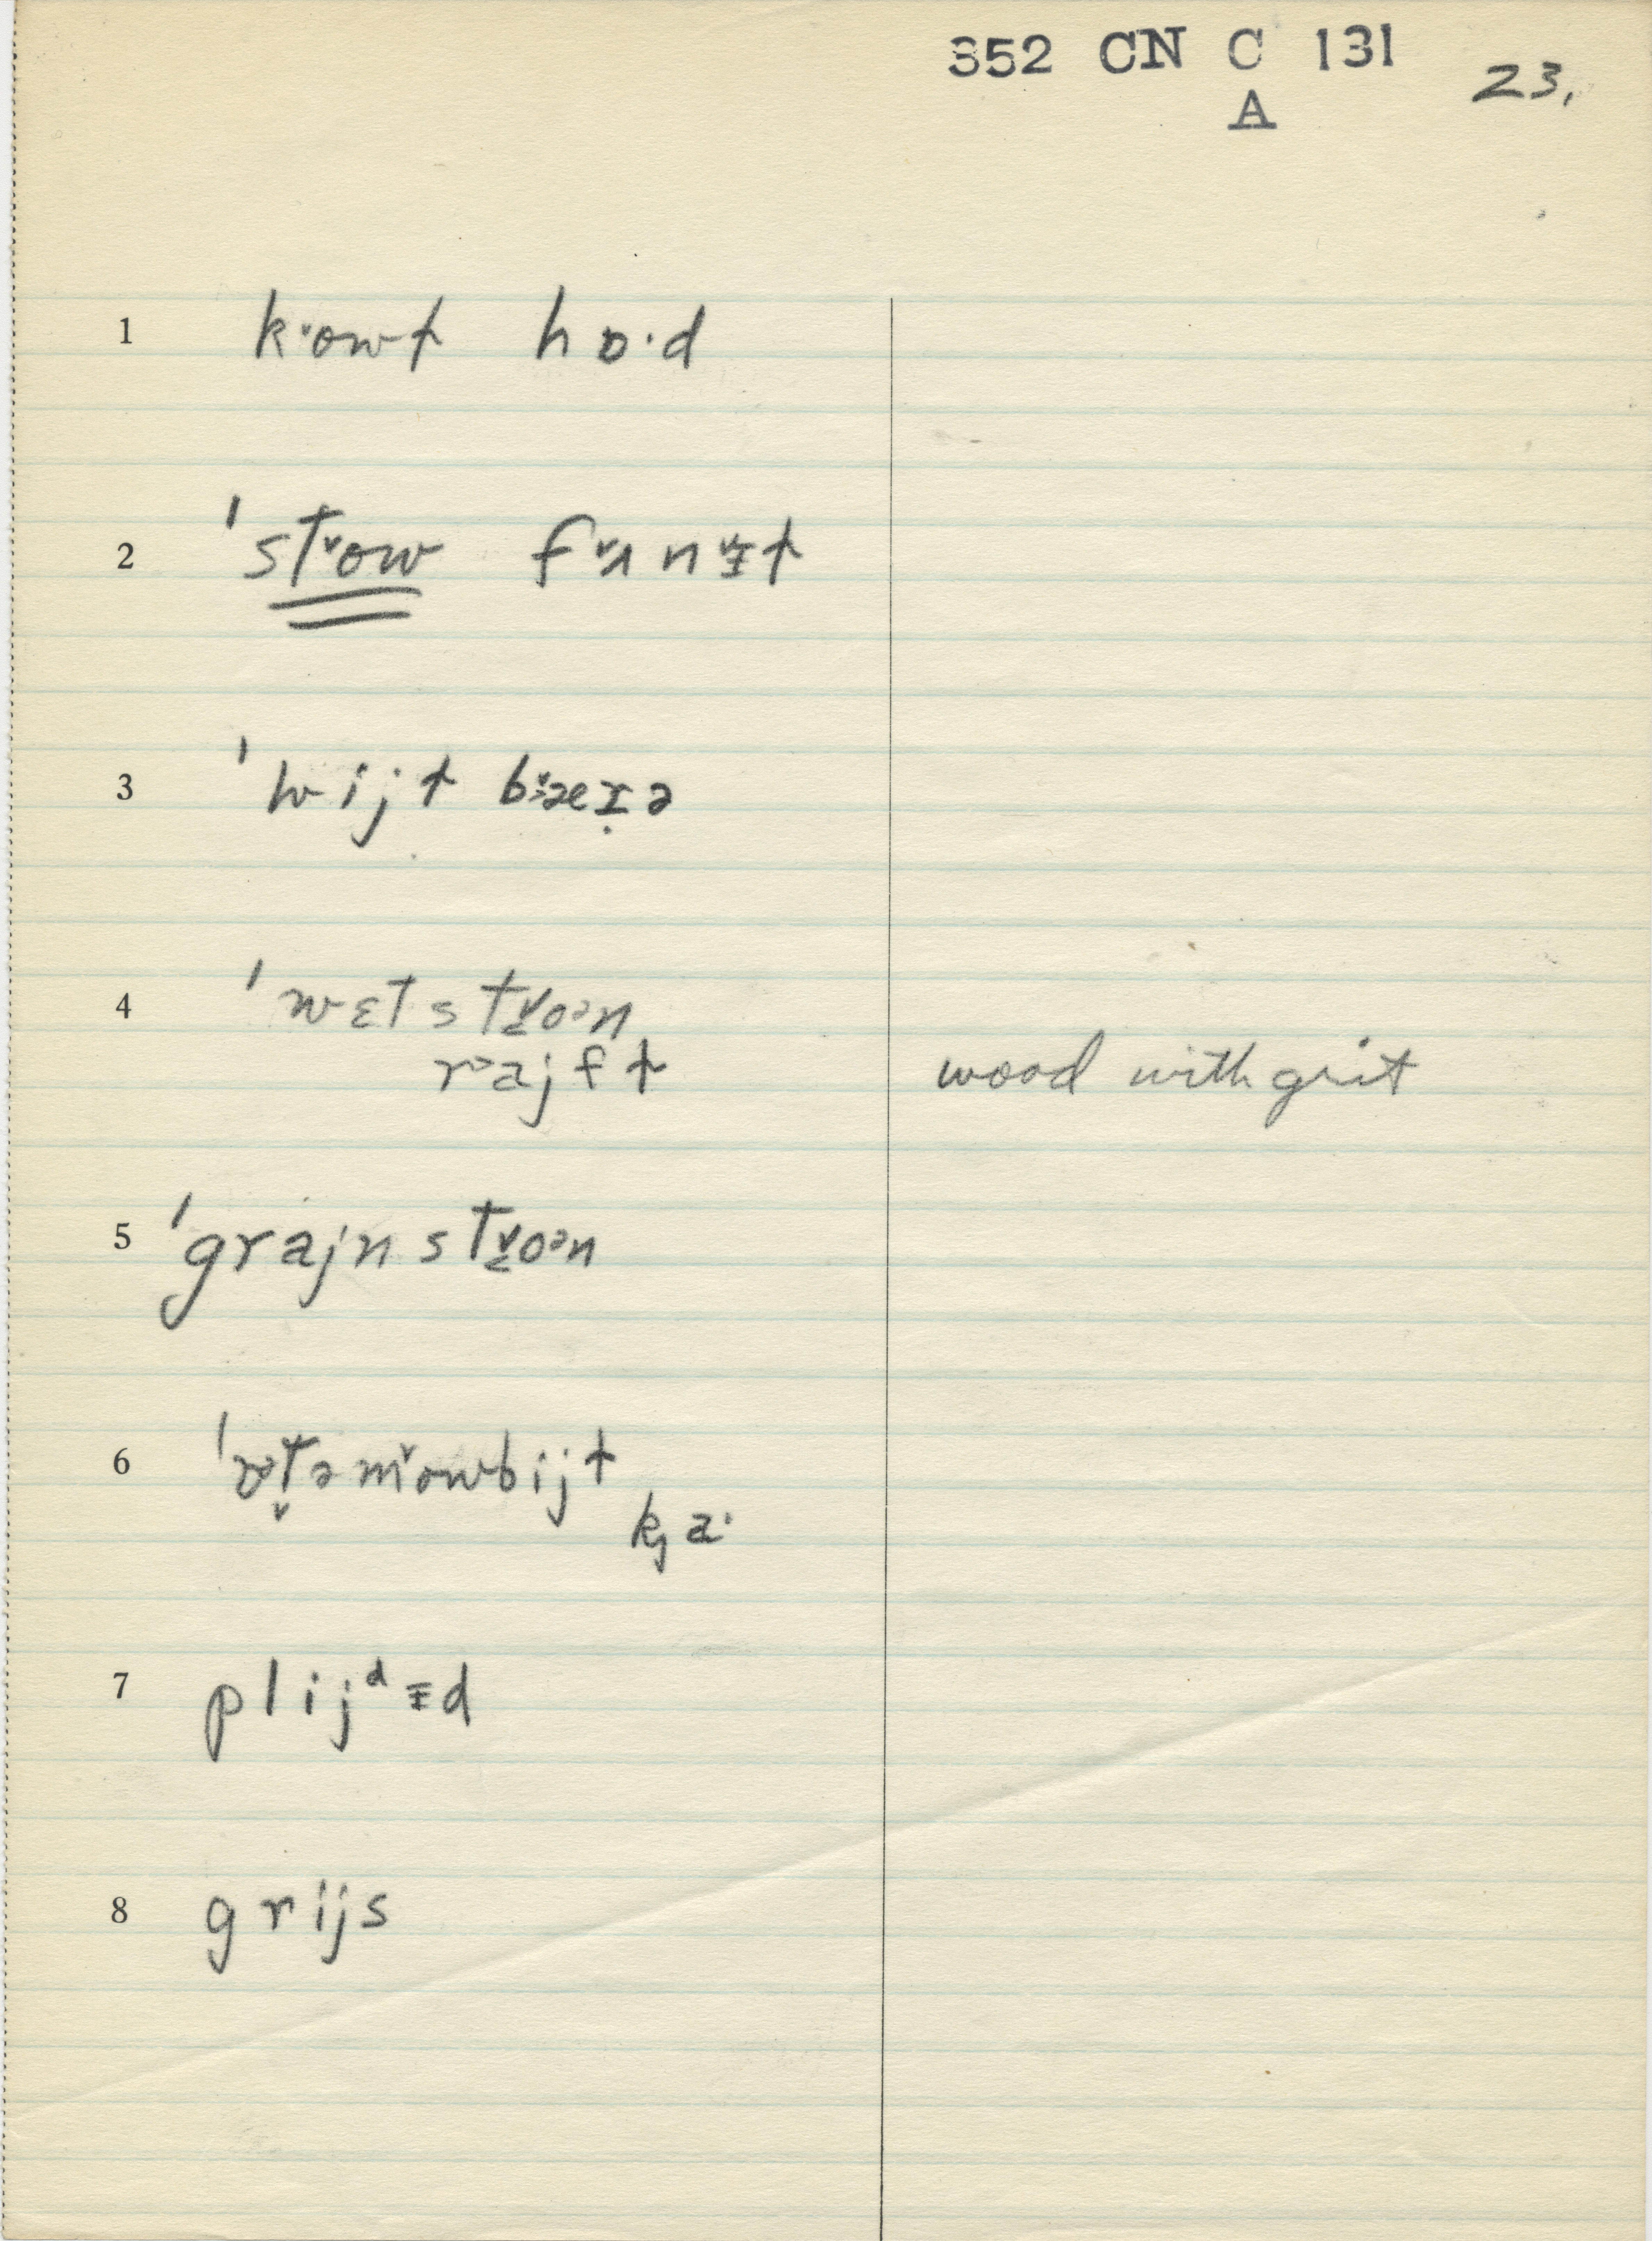 352 CN C 131 23.
A
1 k·owt hɒ·d
2 'stow fʌnɪt
3 'hwijt bæɪə
4 'wɛtstoən
rajft wood with grit
5 'grajnstoən
6
kȷa·
7 plijᵈɪd
8 grijs